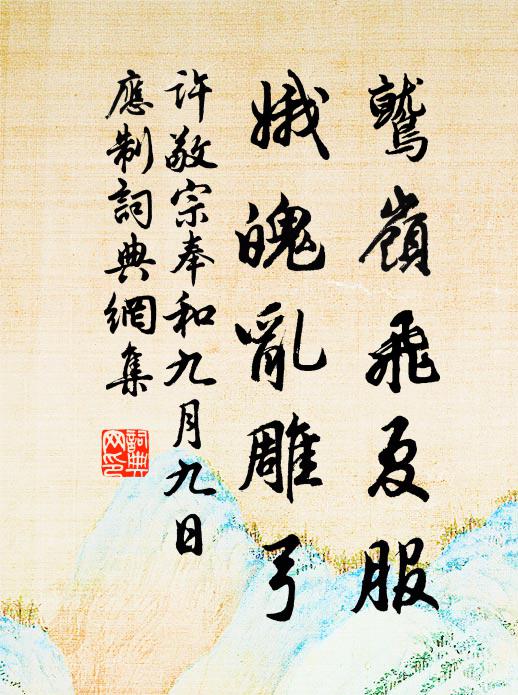 鷲嶺飛夏服
娥魄亂雕弓
許敬宗奉和九月九日
應制詞典網集
詞典
网印